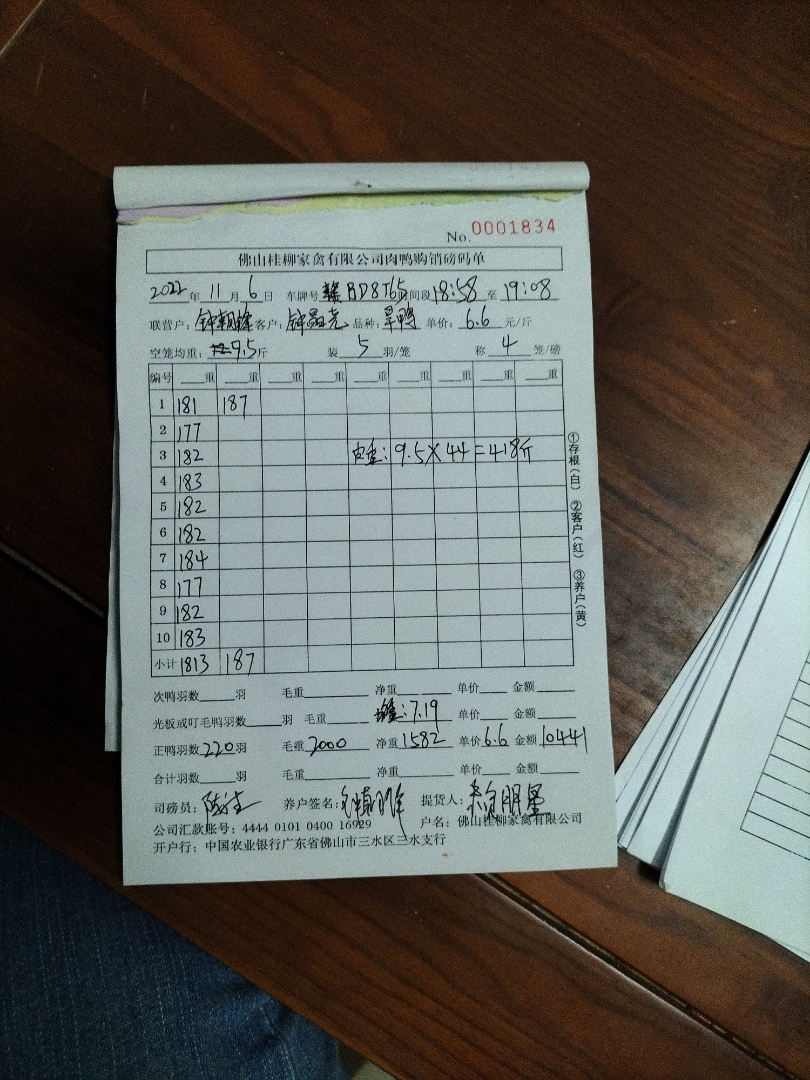 No. 0001834
佛山桂柳家禽有限公司肉鸭购销磅码单
2022年 11月 6日 车牌号 BD8T65 时间段 18:58 至 19:08
联营户: 钟朝锋 客户: 钟晶亮 品种: 旱鸭 单价: 6.6 元/斤
空笼均重: 9.5斤 装 5 羽/笼 称 4 笼/磅
编号 重 重 重 重 重 重 重 重 重
1 181 187
2 177
3 182 皮重: 9.5×44=418斤
4 183
5 182
6 182
7 184
8 177
9 182
10 183
小计 1813 187
①存根(白) ②客户(红) ③养户(黄)
次鸭羽数 羽 毛重 净重 单价 金额
光板或叮毛鸭羽数 羽 毛重 均重: 7.19 单价 金额
正鸭羽数 220羽 毛重 2000 净重 1582 单价 6.6 金额 10441
合计羽数 羽 毛重 净重 单价 金额
司磅员: 养户签名: 提货人:
公司汇款账号: 4444 0101 0400 16929 户名: 佛山桂柳家禽有限公司
开户行: 中国农业银行广东省佛山市三水区三水支行